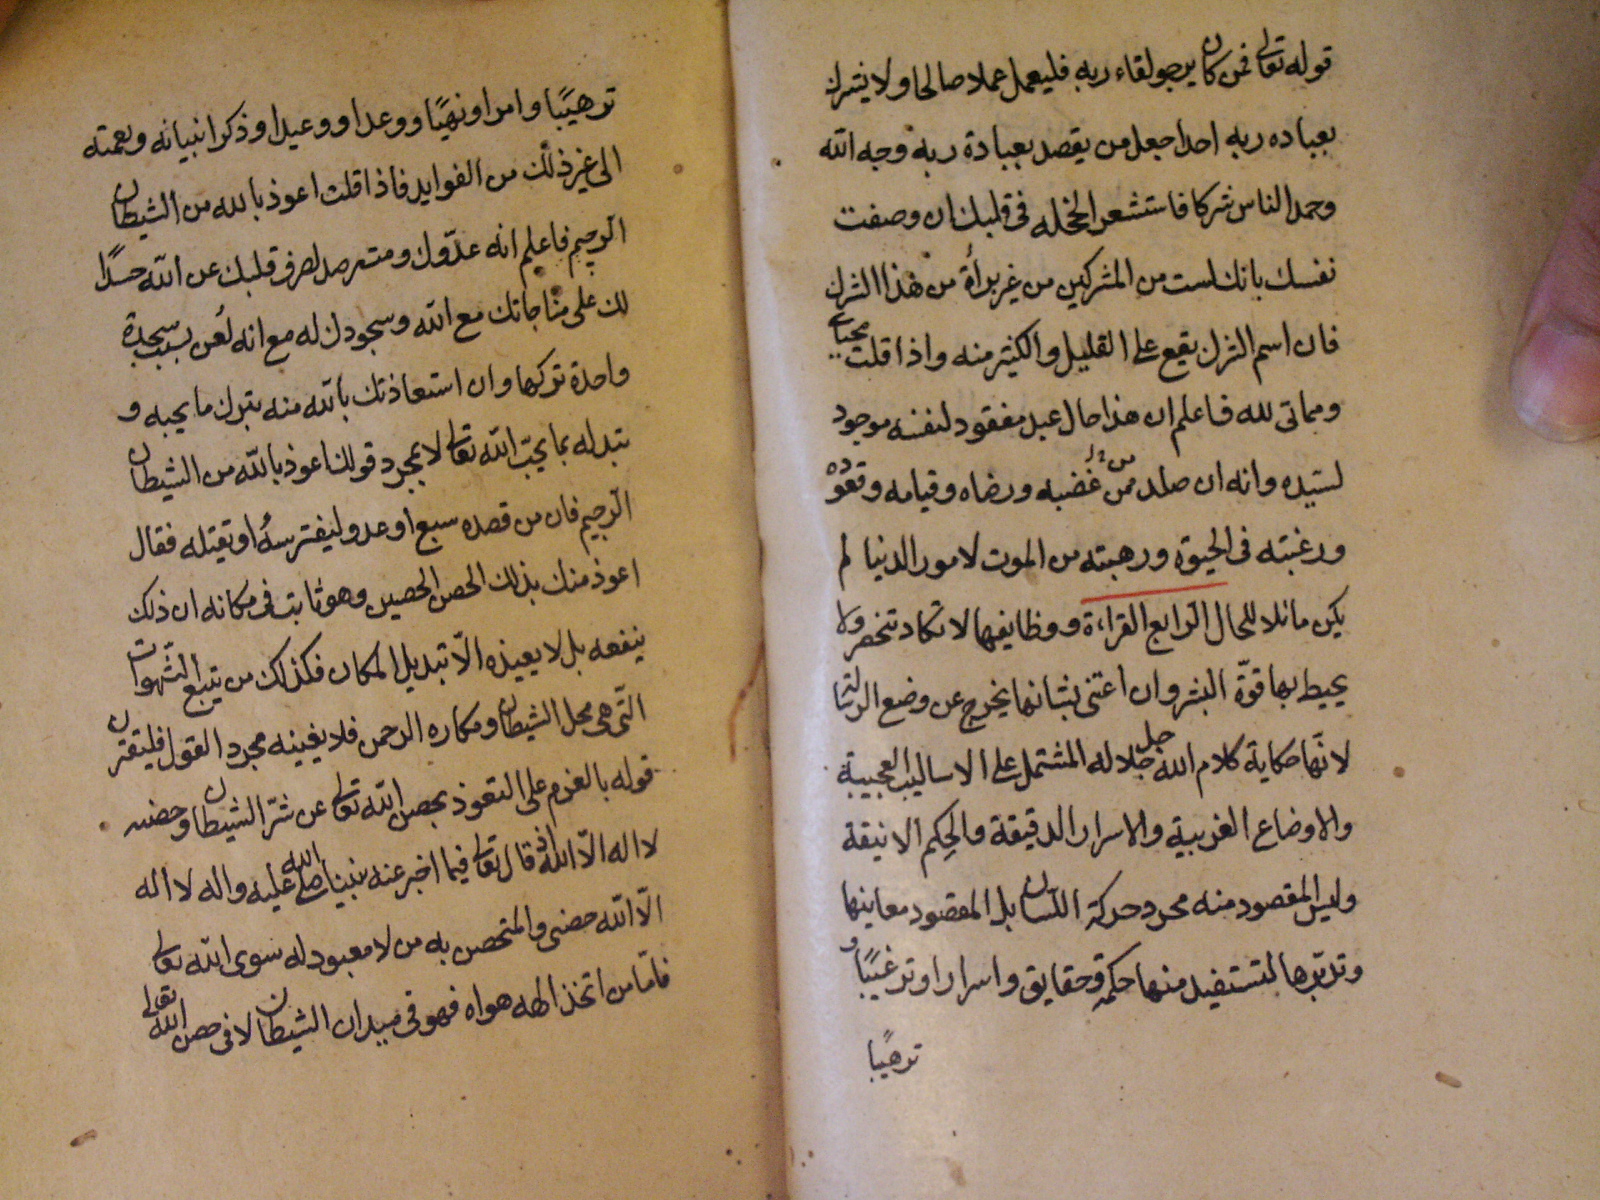 قوله تعالى فمن كان يرجو لقاء ربه فليعمل عملا صالحا ولا يشرك
بعباده ربه احدا جعل من يقصد بعبادة ربه وجه الله
وحمد الناس شركا فاستشعر الخجله في قلبك ان وصفت
نفسك بانك لست من المشركين من غير برأة من هذا الشرك
فان اسم الشرك يقع على القليل والكثير منه واذا قلت محياي
ومماتي لله فاعلم ان هذا حال عبد مفقود لنفسه موجود
لسيّده وانه ان صدر ممن غضبه ورضاه وقيامه وقعوده
ورغبته في الحيوة ورهبته من الموت لامور الدنيا لم
يكن مائلا للحال الرابع القراءة ووظايفها لا تكاد تنحصر ولا
يحيط بها قوّة البشر وان اعتنى بشانها يخرج عن وضع الرسالة
لانّها حكاية كلام الله جل جلاله المشتمل على الاساليب العجيبة
والاوضاع الغريبة والاسرار الدقيقة والحِكم الانيقة
وليس المقصود منه مجرد حركة اللسان بل المقصود معاينها
وتدبّرها لتستفيد منها حكمة وحقايق واسرارا وترغيبًا و
ترهيبا
ترهيبًا وامرا ونهيًا ووعدا ووعيدا وذكر انبيائه ونعمته
الى غير ذلك من الفوايد فاذا قلت اعوذ بالله من الشيطان
الرجيم فاعلم انه عدّوك ومترصد لصرف قلبك عن الله حسدًا
لك على مناجاتك مع الله وسجودك له مع انه لُعن بسبب سجدة
واحدة تركها وان استعاذتك بالله منه بترك ما يحبه و
تبدله بما يحبّ الله تعالى لا بمجرد قولك اعوذ بالله من الشيطان
الرجيم فان من قصده سبع او عدو ليفترسهُ او يقتله فقال
اعوذ منك بذلك الحصن الحصين وهو ثابت في مكانه ان ذلك
ينفعه بل لا يعيذه الّا تبديل المكان فكذلك من يتبع الشّهوات
الّتي هي محل الشيطان ومكاره الرحمن فلا يغنيه مجرد القول فليقترن
قوله بالعزم على التعوذ بحصن الله تعالى عن شرّ الشيطان وحصنه
لا اله الّا الله اذ قال تعالى فيما اخبر عنه نبينا صلى الله عليه واله لا اله
الّا الله حصني والمتحصن به من لا معبود له سوى الله تعالى
فامّا من اتخذ الهه هواه فهو في ميدان الشيطان لا في حصن الله تعالى